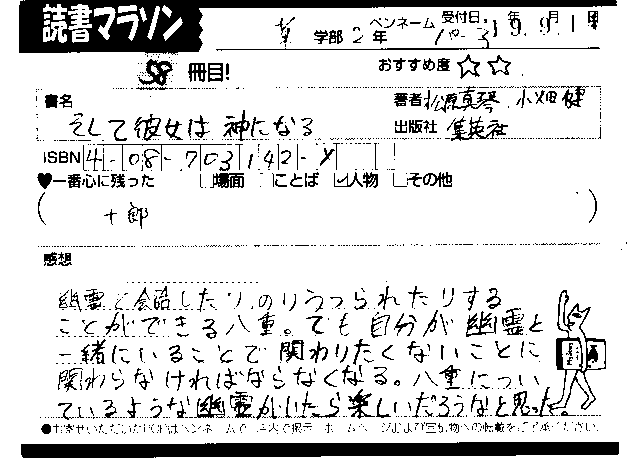 読書マラソン
学部 2年 ペンネーム 受付日. 年 9.月 1日
58 冊目!
おすすめ度 ☆ ☆
書名
そして彼女は神になる
著者 松原真琴 小畑健
出版社 集英社
ISBN 4-08-703142-X
♥一番心に残った □場面 □ことば ☑人物 □その他
( 十郎 )
感想
幽霊と会話したり、のりうつられたりする
ことができる八重。でも自分が幽霊と
一緒にいることで関わりたくないことに
関わらなければならなくなる。八重につい
ているような幽霊がいたら楽しいだろうなと思った。